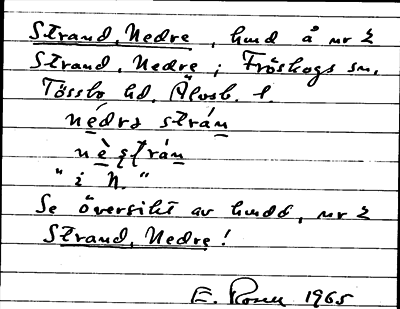 Strand, Nedre, hmd å nr 2
Strand, Nedre i Fröskogs sn,
Tössbo hd, Älvsb. l.
nédrə strán
nèʂʈrán
" i N. "
Se översikt av hmdd, nr 2
Strand, Nedre!
E. Rosell 1965